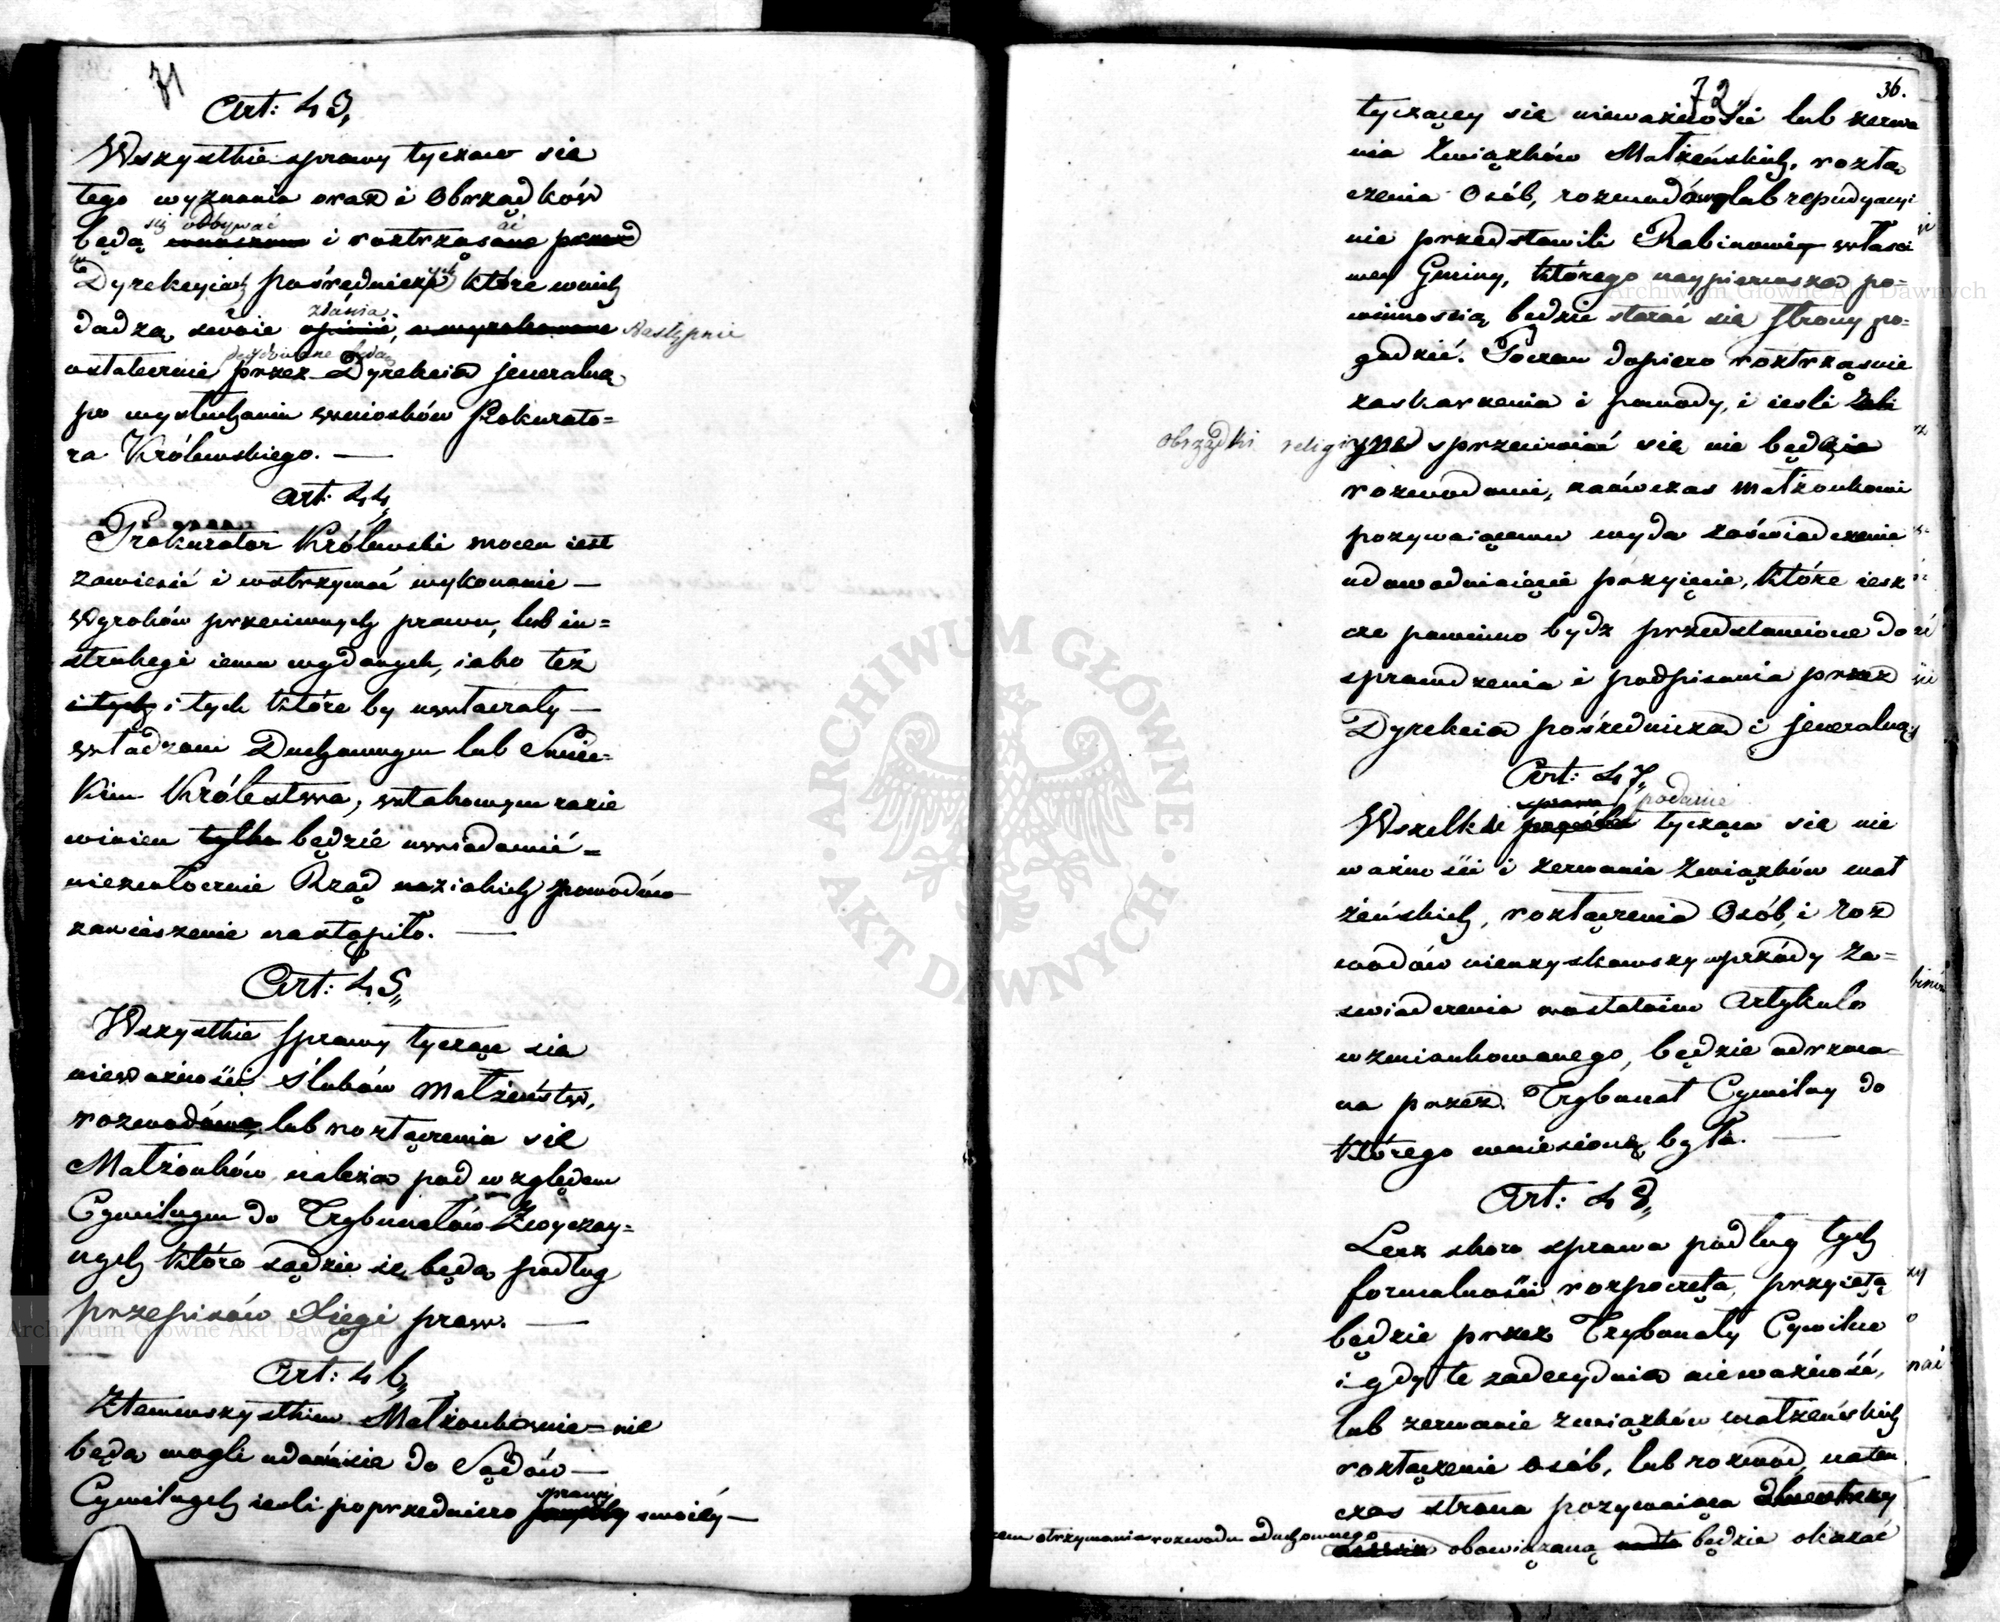 71
Art: 43,
Wszystkie sprawy tyczące się
tego wyznania oraz i Obrządków
się odbywać ać
będą wnoszone i roztrząsane przed
w
Dyrekcyiach pośredniczych które wnich
zdania
dadzą swoie opinie, a wyrokowane następnie
decydowane będą
ostatecznie przez Dyrekcia jeneralną
po wysłuchaniu wniosków Prokurato=
ra Królewskiego. —
Art: 44,
Prokurator Królewski mocen iest
zawiesić i wstrzymać wykonanie —
wyroków przeciwnych prawu, lub in=
strukcyi iemu wydanych, iako też
i tych i tych które by uwłaczały —
władzom Duchownym lub Świec=
kim Królestwa, wtakowym razie
winien tylko będzie uwiadomić =
niezwłocznie Rząd naziakich powodów
zawieszenie nastąpiło. —
Art: 45,,
Wszystkie sprawy tyczące się
nieważności Ślubów Małżeństw,
rozwodówe, lub rozłączenia się
Małżonków należą pod względem
Cywilnym do Trybunałów Zwyczay=
nych które sądzić ie będą podług
przepisów Xięgi praw. —
Art: 46,,
Ztemwszystkiem Małżonkowie nie
będą mogli udawać się do Sądów —
sprawy
Cywilnych iesli poprzedniczo swoiéy —
72 36.
tyczącey się nieważności lub zerwa
nia Związków Małżeńskich, rozłą
czenia Osób, rozwodów lub repudyacyi
nie przedstawili Rabinowi właści
wey Gminy, którego naypierwsza po=
winnością będzie starać się Strony po=
godzić. Poczem dopiero roztrząsnie
zaskarzenia i powody, i iesli
obrządki religiyne sprzeciwiać się nie będzie
rozwodowi, naówczas małżonkowi
pozywaiącemu wyda zaświadczenie
udowadniaiące przyięcie, które iesz
cze powinno bydz przedstawione do
sprawdzenia i podpisania przez
Dyrekcia pośrednicza i jeneralną
Art: 47,,
sprawa podanie
Wszelkie tycząca się nie
ważności i zerwania Związków mał
żeńskich, rozłączenia Osób, i roz
wodów nieuzyskawszy wprzódy Za=
swiadczenia wostatnim Artykule
wzmiankowanego, będzie odrzuca=
na przez Trybunał Cywilny do
którego wniesioną była. —
Art: 48,,
Lecz skoro sprawa podług tych
formalności rozpoczęta, przyięta
będzie przez Trybunały Cywilne
i gdy te zadecyduia nieważność,
lub zerwanie związków małzeńskich
rozłączenie osób, lub rozwód, naten
czas strona pozywaiąca
otrzymania rozwodu Duchownego
obowiązaną będzie okazać
Archiwum Główne Akt Dawnych
Archiwum Główne Akt Dawnych
ARCHIWUM GŁÓWNE · AKT DAWNYCH ·